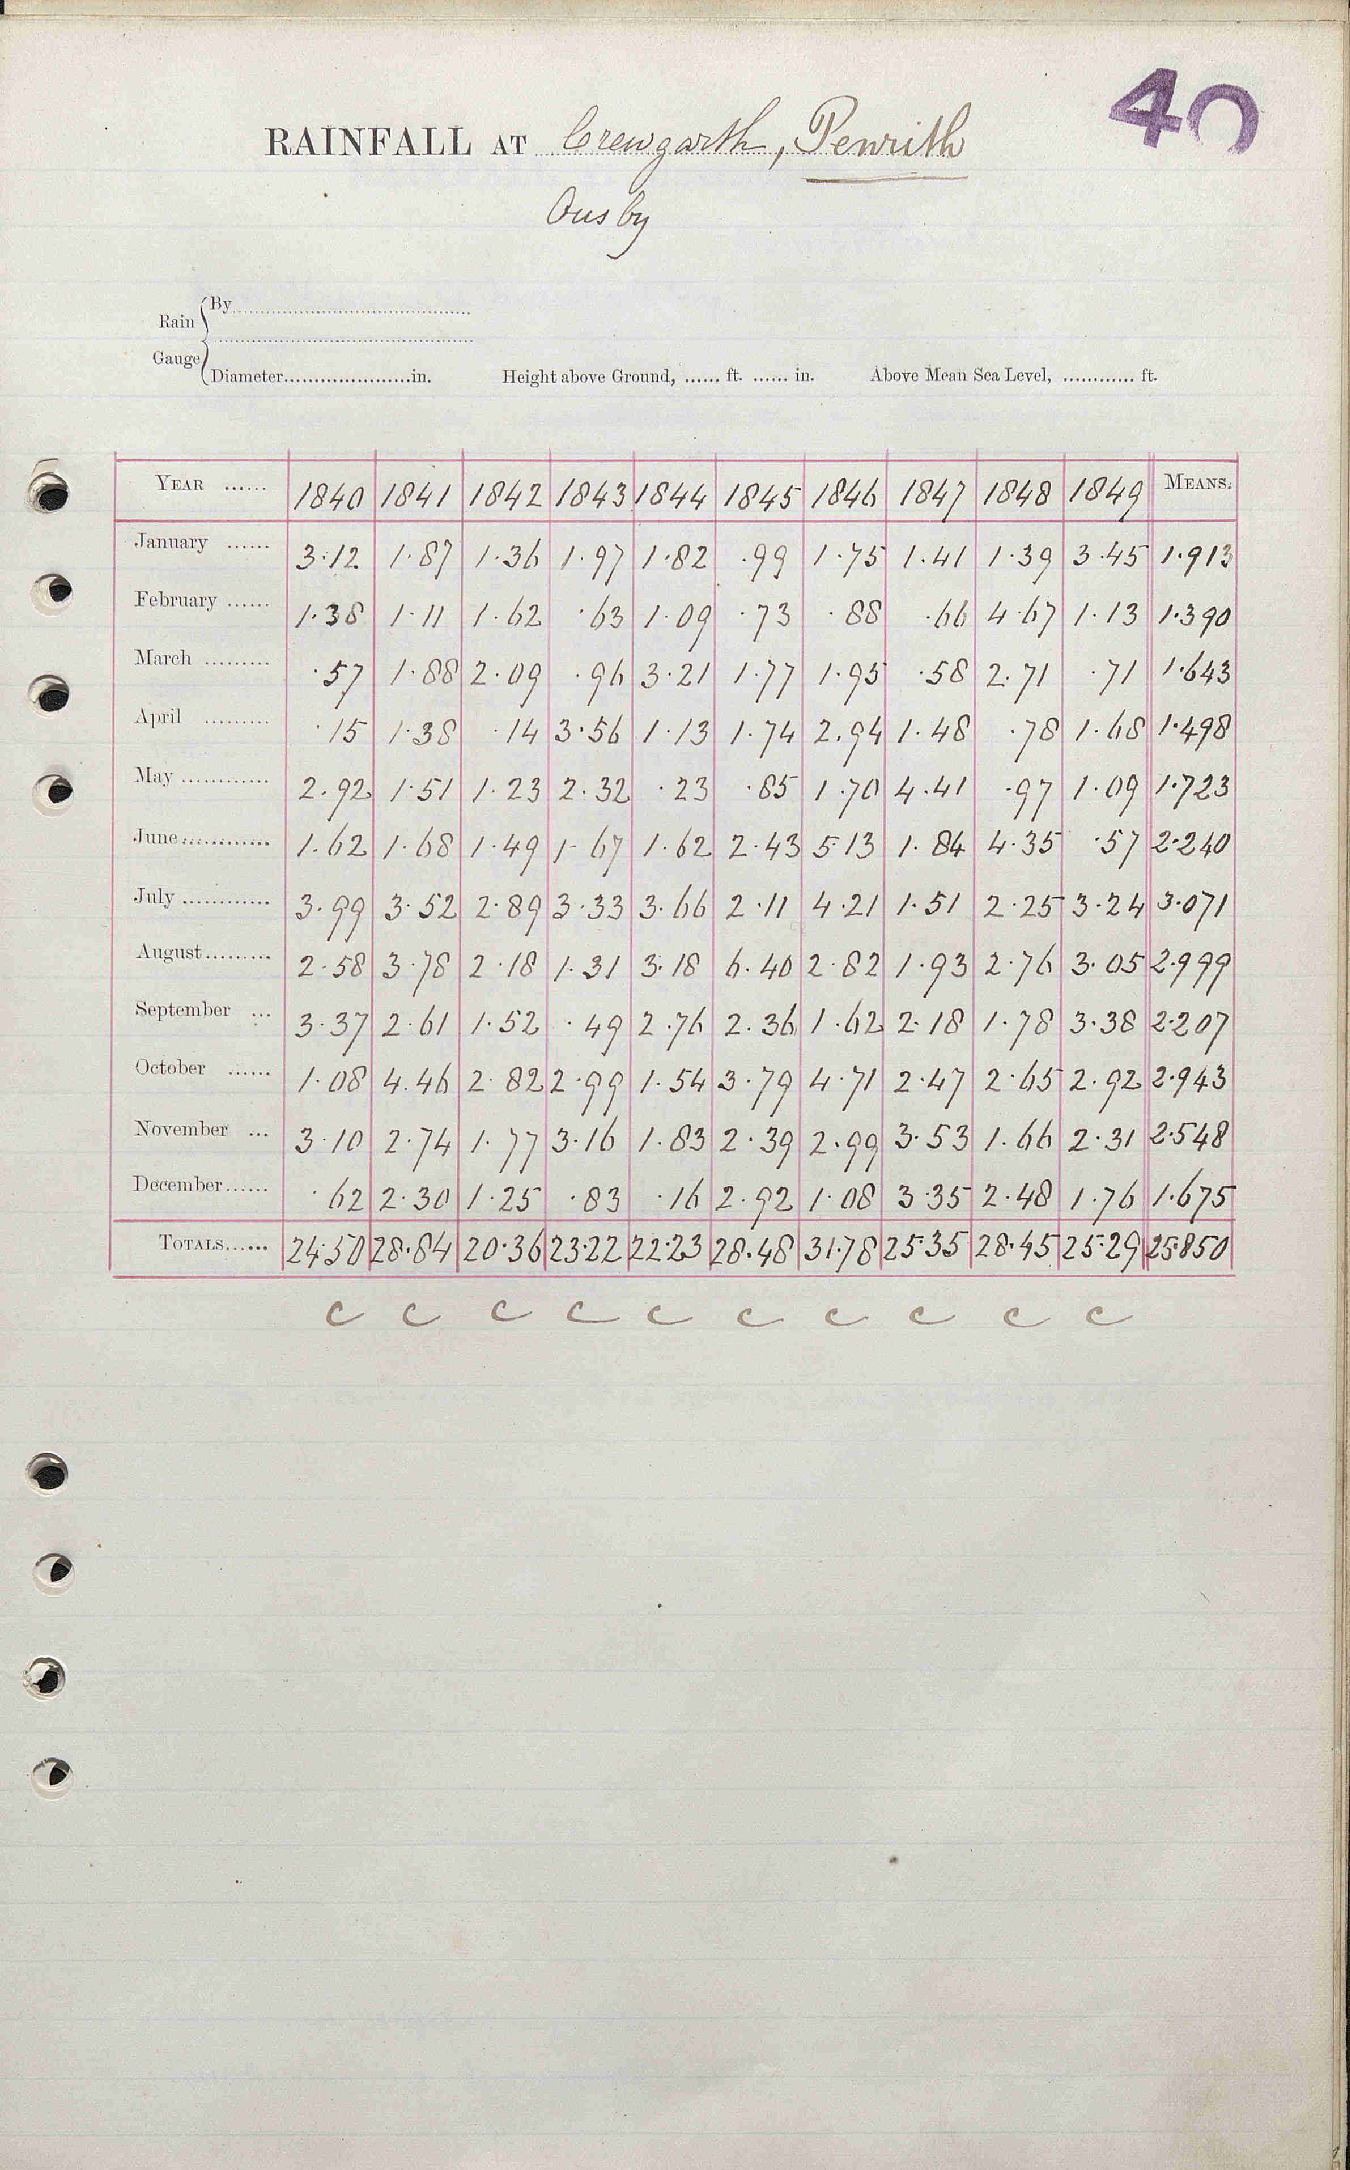 40
RAINFALL AT Crewgarth, Penrith
Ousby
Rain Gauge
By
Diameter in. Height above Ground, ...... ft. ...... in. Above Mean Sea Level, ............ ft.
YEAR ...... 1840 1841 1842 1843 1844 1845 1846 1847 1848 1849 MEANS.
January ...... 3.12 1.87 1.36 1.97 1.82 .99 1.75 1.41 1.39 3.45 1.913
February ...... 1.38 1.11 1.62 .63 1.09 .73 .88 .66 4.67 1.13 1.390
March ......... .57 1.88 2.09 .96 3.21 1.77 1.95 .58 2.71 .71 1.643
April ......... .15 1.38 .14 3.56 1.13 1.74 2.94 1.48 .78 1.68 1.498
May ............ 2.92 1.51 1.23 2.32 .23 .85 1.70 4.41 .97 1.09 1.723
June ............ 1.62 1.68 1.49 1.67 1.62 2.43 5.13 1.84 4.35 .57 2.240
July ............ 3.99 3.52 2.89 3.33 3.66 2.11 4.21 1.51 2.25 3.24 3.071
August ......... 2.58 3.78 2.18 1.31 3.18 6.40 2.82 1.93 2.76 3.05 2.999
September ... 3.37 2.61 1.52 .49 2.76 2.36 1.62 2.18 1.78 3.38 2.207
October ...... 1.08 4.46 2.82 2.99 1.54 3.79 4.71 2.47 2.65 2.92 2.943
November ... 3.10 2.74 1.77 3.16 1.83 2.39 2.99 3.53 1.66 2.31 2.548
December ...... .62 2.30 1.25 .83 .16 2.92 1.08 3.35 2.48 1.76 1.675
TOTALS ...... 24.50 28.84 20.36 23.22 22.23 28.48 31.78 25.35 28.45 25.29 25.850
c c c c c c c c c c